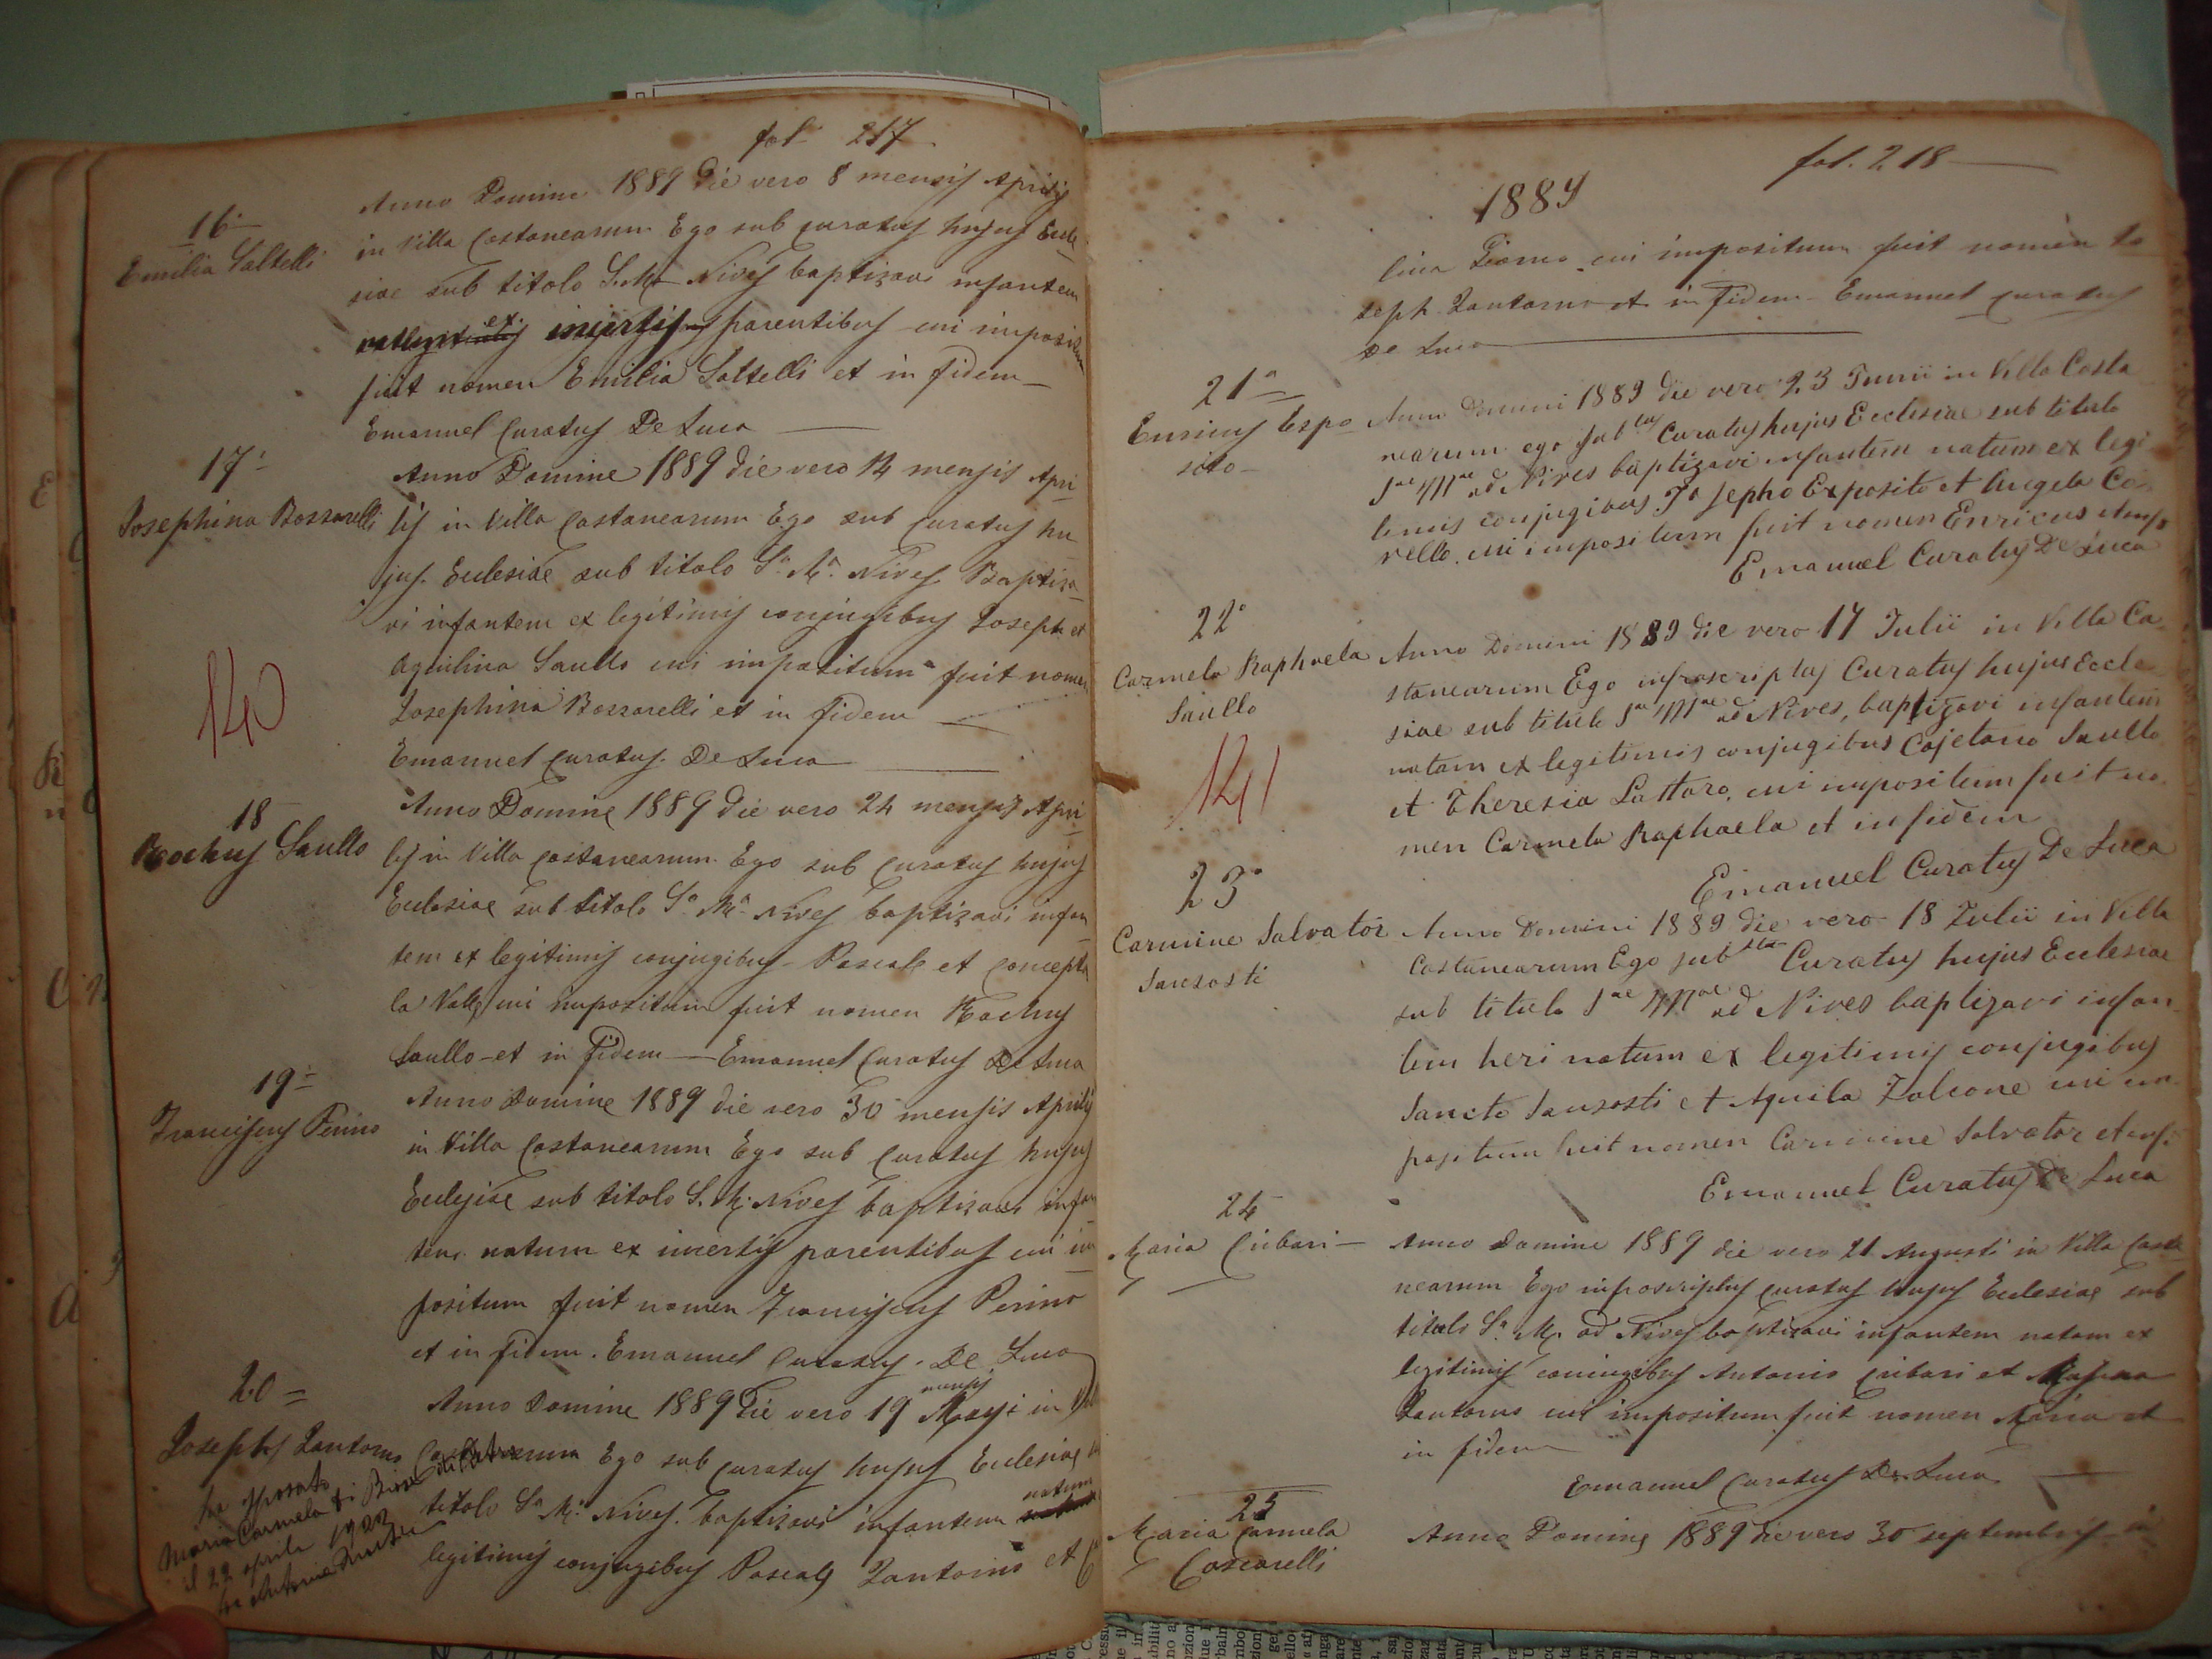 fol. 217
16
Emilia Saltelli
Anno Domine 1889 die vero 8 mensis Aprilis
in Villa Castanearum Ego sub curatus hujus Eccle
siae sub titolo S. Ma Nives baptizavi infantem
ex incertis parentibus cui impositum
fuit nomen Emilia Saltelli et in fidem
Emanuel Curatus De Luca
17
Josephina Bossarelli
Anno Domine 1889 die vero 14 mensis Apri
lis in Villa Castanearum Ego sub Curatus hu
jus Ecclesiae sub titolo Sa Ma Nives Baptiza
vi infantem ex legitimis conjugibus Joseph et
Aquilina Saullo cui impositum fuit nomen
Josephina Bossarelli et in fidem
Emanuel Curatus De Luca
140
18
Rochus Saullo
Anno Domine 1889 die vero 24 mensis Apri
lis in Villa Castanearum Ego sub Curatus hujus
Ecclesiae sub titolo Sa Ma Nives baptizavi infan
tem ex legitimis conjugibus Pascale et Concepta
la Valle cui impositum fuit nomen Rochus
Saullo et in fidem Emanuel Curatus De Luca
19
Franciscus Perino
Anno Domine 1889 die vero 30 mensis Aprilis
in Villa Castanearum Ego sub Curatus hujus
Eclesiae sub titolo S. M. Nives baptizavi infan
tem natum ex incertis parentibus cui im
positum fuit nomen Franciscus Perino
et in fidem. Emanuel Curatus De Luca
20
Josephs Santoro
Anno Domine 1889 die vero 19 mensis Mayi in
Castanearum Ego sub Curatus hujus Eclesiae
titolo Sa Ma Nives baptizavi infantem natum
legitimis conjugibus Pascale Santorno et
ha sposato
Maria Carmela di
il 22 aprile 1922
fol. 218
1889
lina cui impositum fuit nomen Jo
seph Santorno et in fidem Emanuel Curatus
De Luca
21a
Enricus Espo
sito
Anno Domini 1889 die vero 23 Junii in Villa Casta
nearum ego subtus Curatus hujus Ecclesiae sub titulo
Sae Mae ad Nives baptizavi infantem natum ex legi
timis conjugibus Josepho Exposito et Angela Co
rello, cui impositum fuit nomen Enricus et in f
Emanuel Curatus De Luca
22°
Carmela Raphaela
Saullo
Anno Domini 1889 die vero 17 Julii in Villa Ca
stanearum Ego infrascriptus Curatus hujus Eccle
siae sub titulo Sae Mae ad Nives, baptizavi infantem
natam ex legitimis conjugibus Cajetano Saullo
et Theresia Lattaro, cui impositum fuit no
men Carmela Raphaela et in fidem
Emanuel Curatus De Luca
141
23°
Carmine Salvator
Sansosti
Anno Domini 1889 die vero 18 Julii in Villa
Castanearum Ego sub Curatus hujus Ecclesiae
sub titulo Sae Mae ad Nives baptizavi infan
tem heri natum ex legitimis conjugibus
Sancto Sansosti et Aquila Falcone cui im
positum fuit nomen Carmine Salvator et in f
Emanuel Curatus De Luca
24
Maria Ciibari
Anno Domine 1889 die vero 21 Augusti in Villa Casta
nearum Ego infrascriptus Curatus hujus Ecclesiae sub
titulo Sa M. ad Nives baptizavi infantem natam ex
legitimis coniugibus Antonio Ciibari et
Santorno cui impositum fuit nomen Maria et
in fidem
Emanuel Curatus De Luca
25
Maria Carmela
Coscarelli
Anno Domine 1889 die vero 30 septembris in